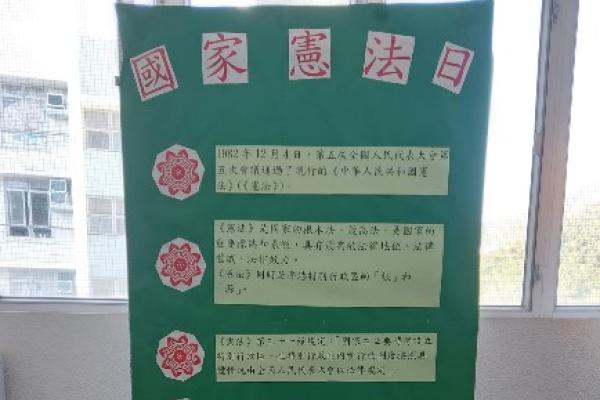 國家憲法日
1982年12月4日，第五屆全國人民代表大會第
五次會議通過了現行的《中華人民共和國憲
法》(《憲法》)。
《憲法》是國家的根本法，最高法，是國家的
重要標誌和象徵，具有最高的法律地位、法律
權威、法律效力。
《憲法》同時是香港特別行政區的「根」和
「源」。
《憲法》第三十一條規定：「國家在必要時得設立
特別行政區。在特別行政區內實行的制度按照具
體情況由全國人民代表大會以法律規定。